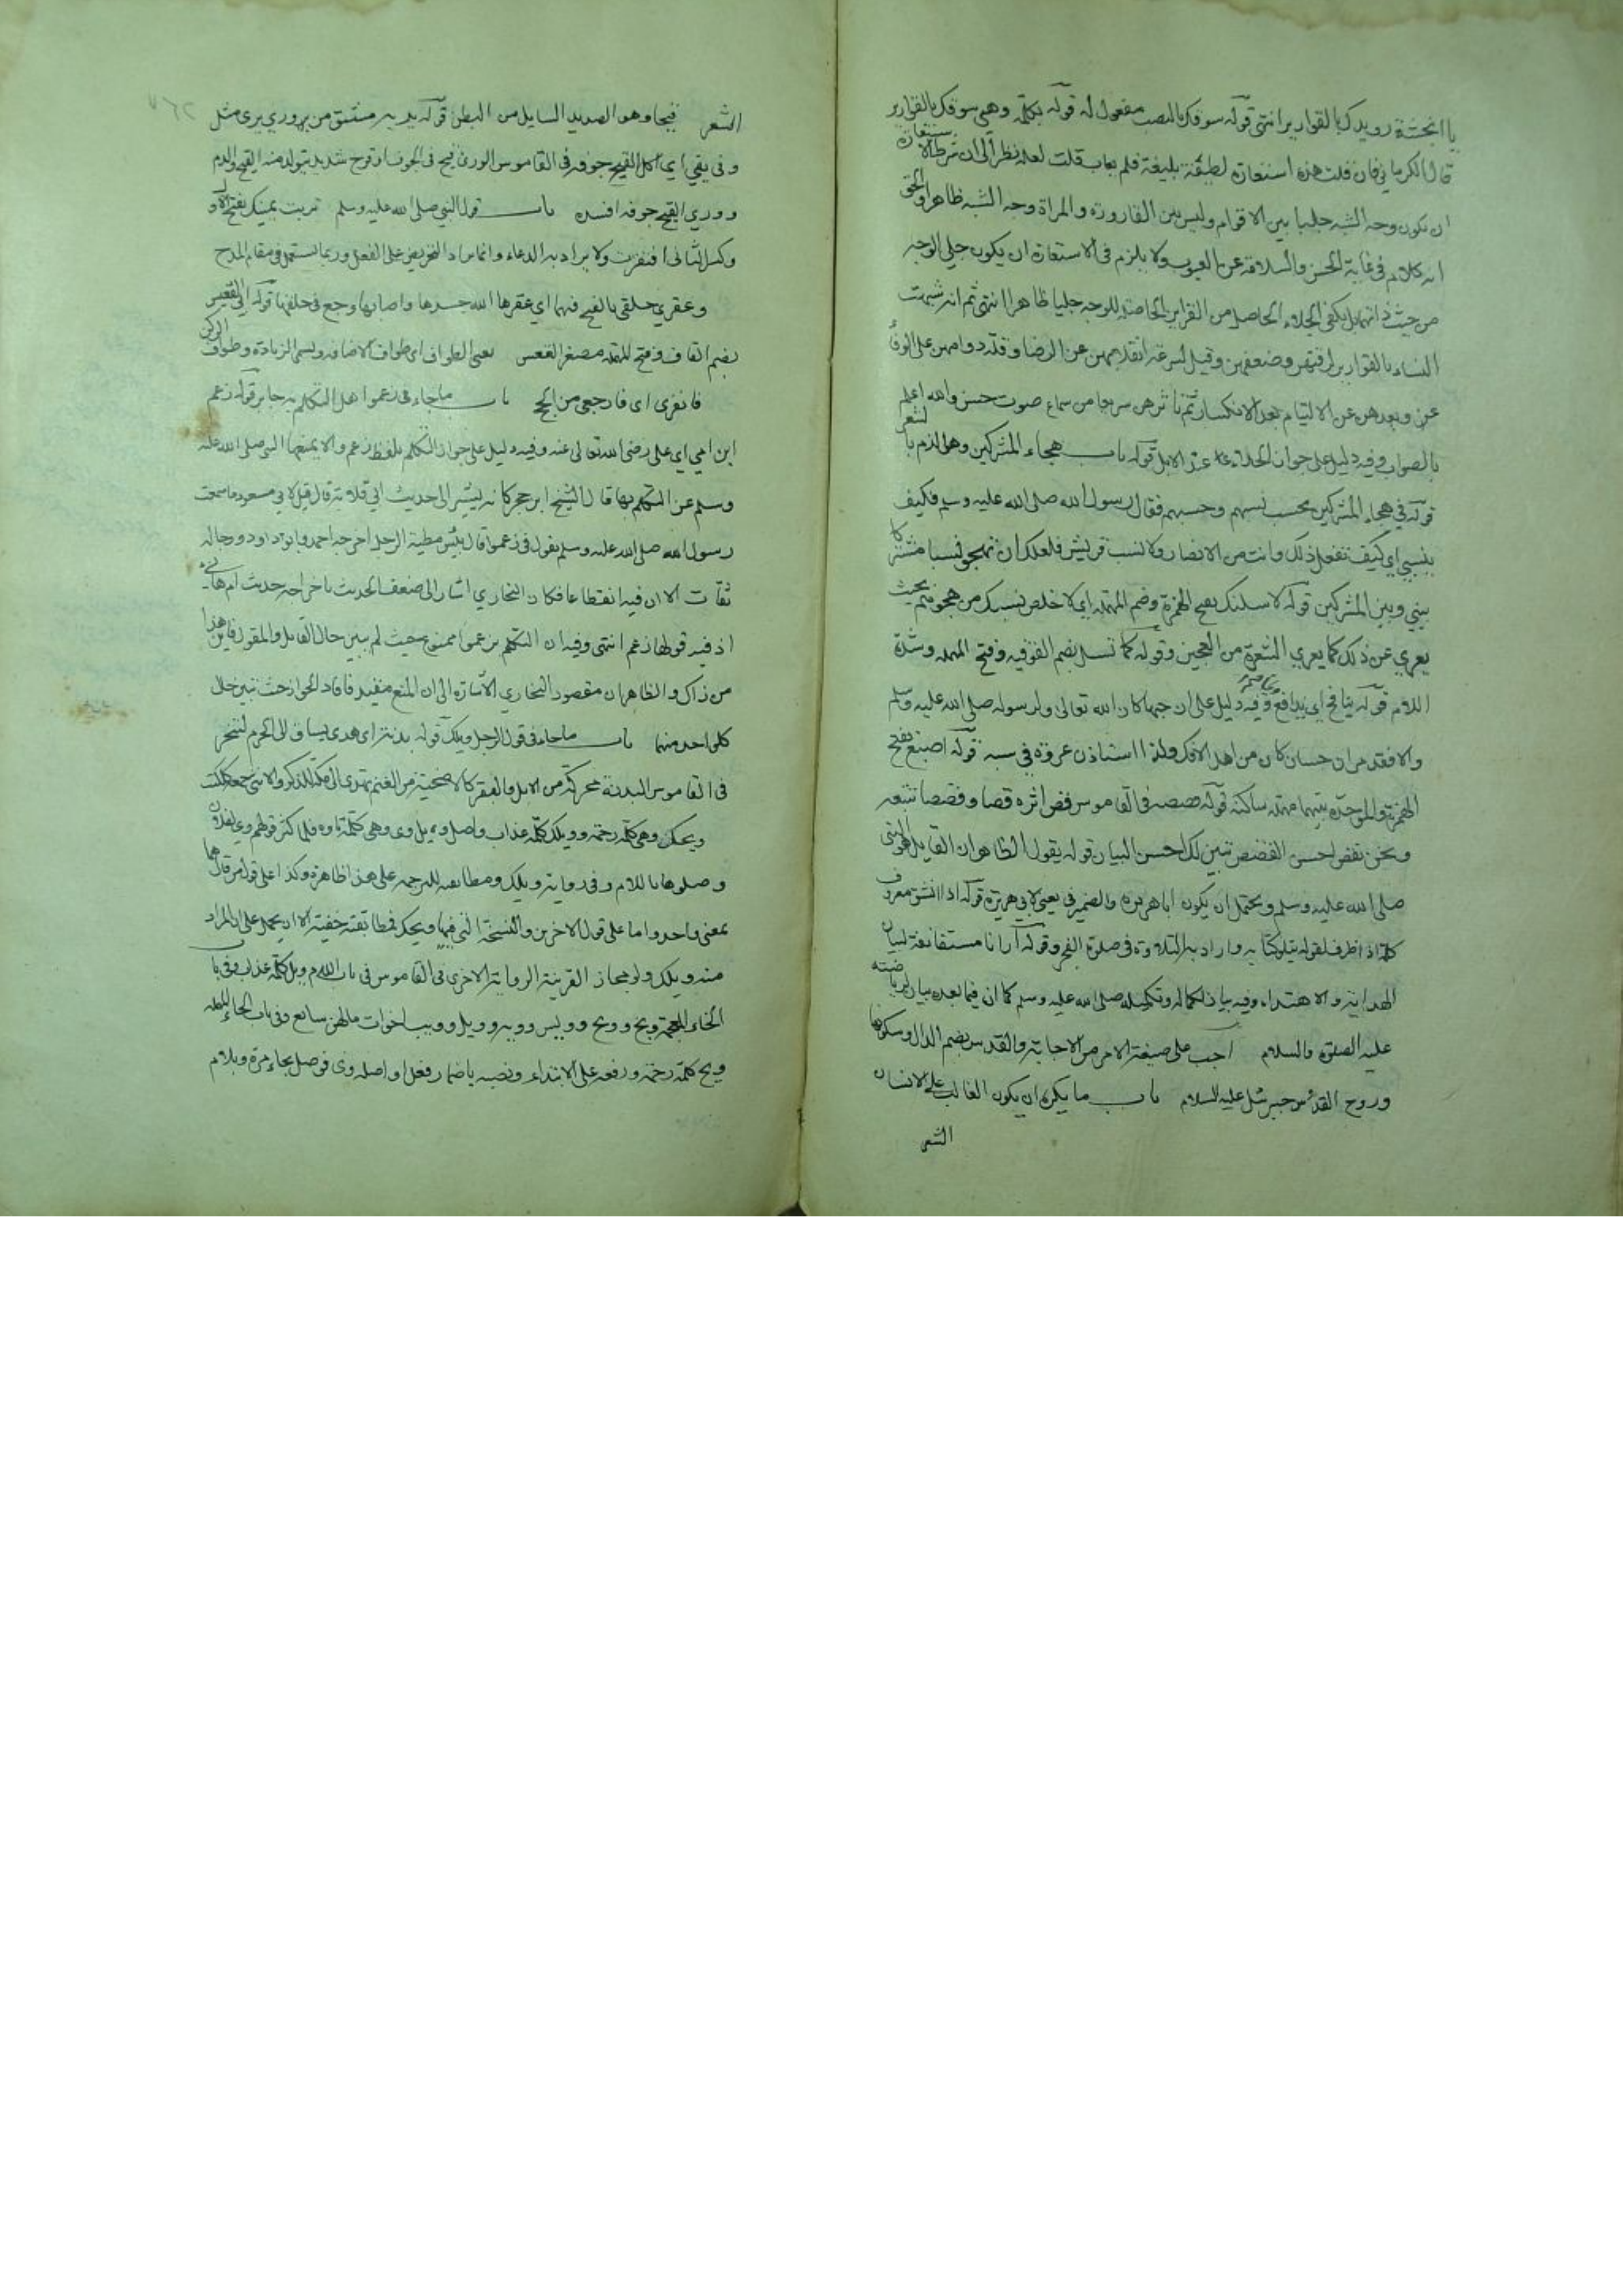 يا انجشة رويدك بالقوارير انتهى قوله سوقك بالنصب مفعول له قوله بكلمة وهي سوقك بالقوارير
قال الكرماني فان قلت هذه استعارة لطيفة بليغة فلم يعاب قلت لعله نظر الى ان شرط الاستعارة
ان يكون وجه الشبه جليا بين الاقوام وليس بين القارورة والمراة وجه الشبه ظاهرا والحق
انه كلام في غاية الحسن والسلامة عن العيوب ولا يلزم في الاستعارة ان يكون جلي الوجه
من حيث ذاتهما بل يكفي الجلاء الحاصل من القراين الحاصلة للوجه جليا ظاهرا انتهى ثم انه شبهت
النساء بالقوارير لرقتهن وضعفهن وقيل لسرعة انقلابهن عن الرضا وقلة دوامهن على الوفا
عن وبعدهن عن الالتيام بعد الانكسار ثم تاثرهن سريعا من سماع صوت حسن والله اعلم
بالصواب وفيه دليل على جواز الحداء عند الابل قوله باب هجاء المشركين وهو الذم بالشعر
قوله في هجاء المشركين بحسب نسبهم وحسبهم فقال رسول الله صلى الله عليه وسلم فكيف
بنسبي اي كيف تفعل ذلك وانت من الانصار ولا نسب قريش فلعلك ان تهجو نسبا مشتركا
بيني وبين المشركين قوله لاسلنك بفتح الهمزة وضم المهملة اي لاخلص نسبك من هجوهم بحيث
يعري عن ذلك كما يعري الشعرة من العجين وقوله كما تسل بضم الفوقيه وفتح المهمله وشدة
اللام قوله ينافح اي يدافع وفيه دليل على ان هجاءه كان الله تعالى ولرسوله صلى الله عليه وسلم
والا فقد مر ان حسان كان من اهل الافك ولذا استاذن عروة في سبه قوله اصبغ بفتح
الهمزة والموحدة بينهما مهملة ساكنة قوله قصصه في القاموس قص اثره قصا وقصصا تتبعه
ونحن نقص احسن القصص نبين لك احسن البيان قوله يقول الظاهر ان القايل هو النبي
صلى الله عليه وسلم ويحتمل ان يكون اباهريرة والضمير في يعني لابي هريرة قوله اذا انشق معروف
كلمة اذ اظرف لقوله يتلو كتابه واراد به التلاوة في صلوة الفجر وقوله ارانا مستقا نعة لبيان
الهداية والاهتداء وفيه بيان لكماله وتكميله صلى الله عليه وسلم كما ان فيما بعده بيان لرياضته
عليه الصلوة والسلام اجب على صيغة الامر من الاجابة والقدس بضم الدال وسكونها
وروح القدس جبرئيل عليه السلام باب ما يكره ان يكون الغالب على الانسان
الشعر
الشعر قيحا وهو الصديد السايل من البطن قوله يريه مشتق من يروي يرى مثل
وفى يقي اي اكل القيح جوفه في القاموس الوري قيح في الجوف او قرح شديد يتولد منه القيح والدم
ووري القيح جوفه افسده باب قول النبي صلى الله عليه وسلم تربت يمينك بفتح الاول
وكسر الثاني افتقرت ولا يراد به الدعاء وانما يراد التحريض على الفعل وربما تستعمل في مقام المدح
وعقري حلقي بالفتح فيهما اي عقرها الله جسدها واصابها وجع في حلقها قوله ابي القعيس
بضم القاف وفتح المهملة مصغر القعس يعني الطواف اي طواف الافاضه ويسمى الزيارة وطواف الركن
فانفري اي فارجعي من الحج باب ماجاء في زعموا اهل التكلم به جايز قوله زعم
ابن امي اي علي رضي الله تعالى عنه وفيه دليل على جواز التكلم بلفظ زعم والا يمنعها النبي صلى الله عليه
وسلم عن التكلم بها قال الشيخ ابن حجر كانه يشير الى حديث ابي قلابة قال قيل لابي مسعود ما سمعت
رسول الله صلى الله عليه وسلم يقول في زعموا قال بئس مطية الرجل اخرجه احمد وابو داود ورجاله
ثقات الا ان فيه انقطاعا فكان البخاري اشار الى ضعف الحديث باخراجه حديث ام هانئ
اذ فيه قولها زعم انتهى وفيه ان التكلم بزعموا ممنوع حيث لم يبين حال القايل والمقول فاين هذا
من ذاك والظاهر ان مقصود البخاري الاشارة الى ان المنع مقيد فافاد الجواز حيث تبين حال
كل واحد منهما باب ماجاء في قول الرجل ويلك قوله بدنة اي هدي يساق الى الحرم لتنحر
في القاموس البدنة محركة من الابل والبقر كالاضحية من الغنم تهدى الى مكة للذكر والانثى جمع ككتب
ويحك وهي كلمة رحمة وويلك كلمة عذاب واصل ويل وي وهي كلمة تاوه فلما كثر قولهم وي لفلان
وصلوها باللام وفي رواية ويلك ومطابقه للترجمه على هذا ظاهرة وكذا على قول من قال هما
بمعنى واحد واما على قول الاخرين والنسخة التي فيها ويحك فمطابقته خفية الا ان يحمل على ان المراد
منه ويلك ولو مجاز القرينة الرواية الاخرى في القاموس في باب اللام ويل كلمة عذاب وفي باب
الخاء المعجمة ويخ وويح وويس وويه وويل وويب اخوات مالهن سابع وفي باب الحاء المهمله
ويح كلمة رحمة ورفعه على الابتداء ونصبه باضمار فعل او اصله وي فوصل بحاء مرة وبلام